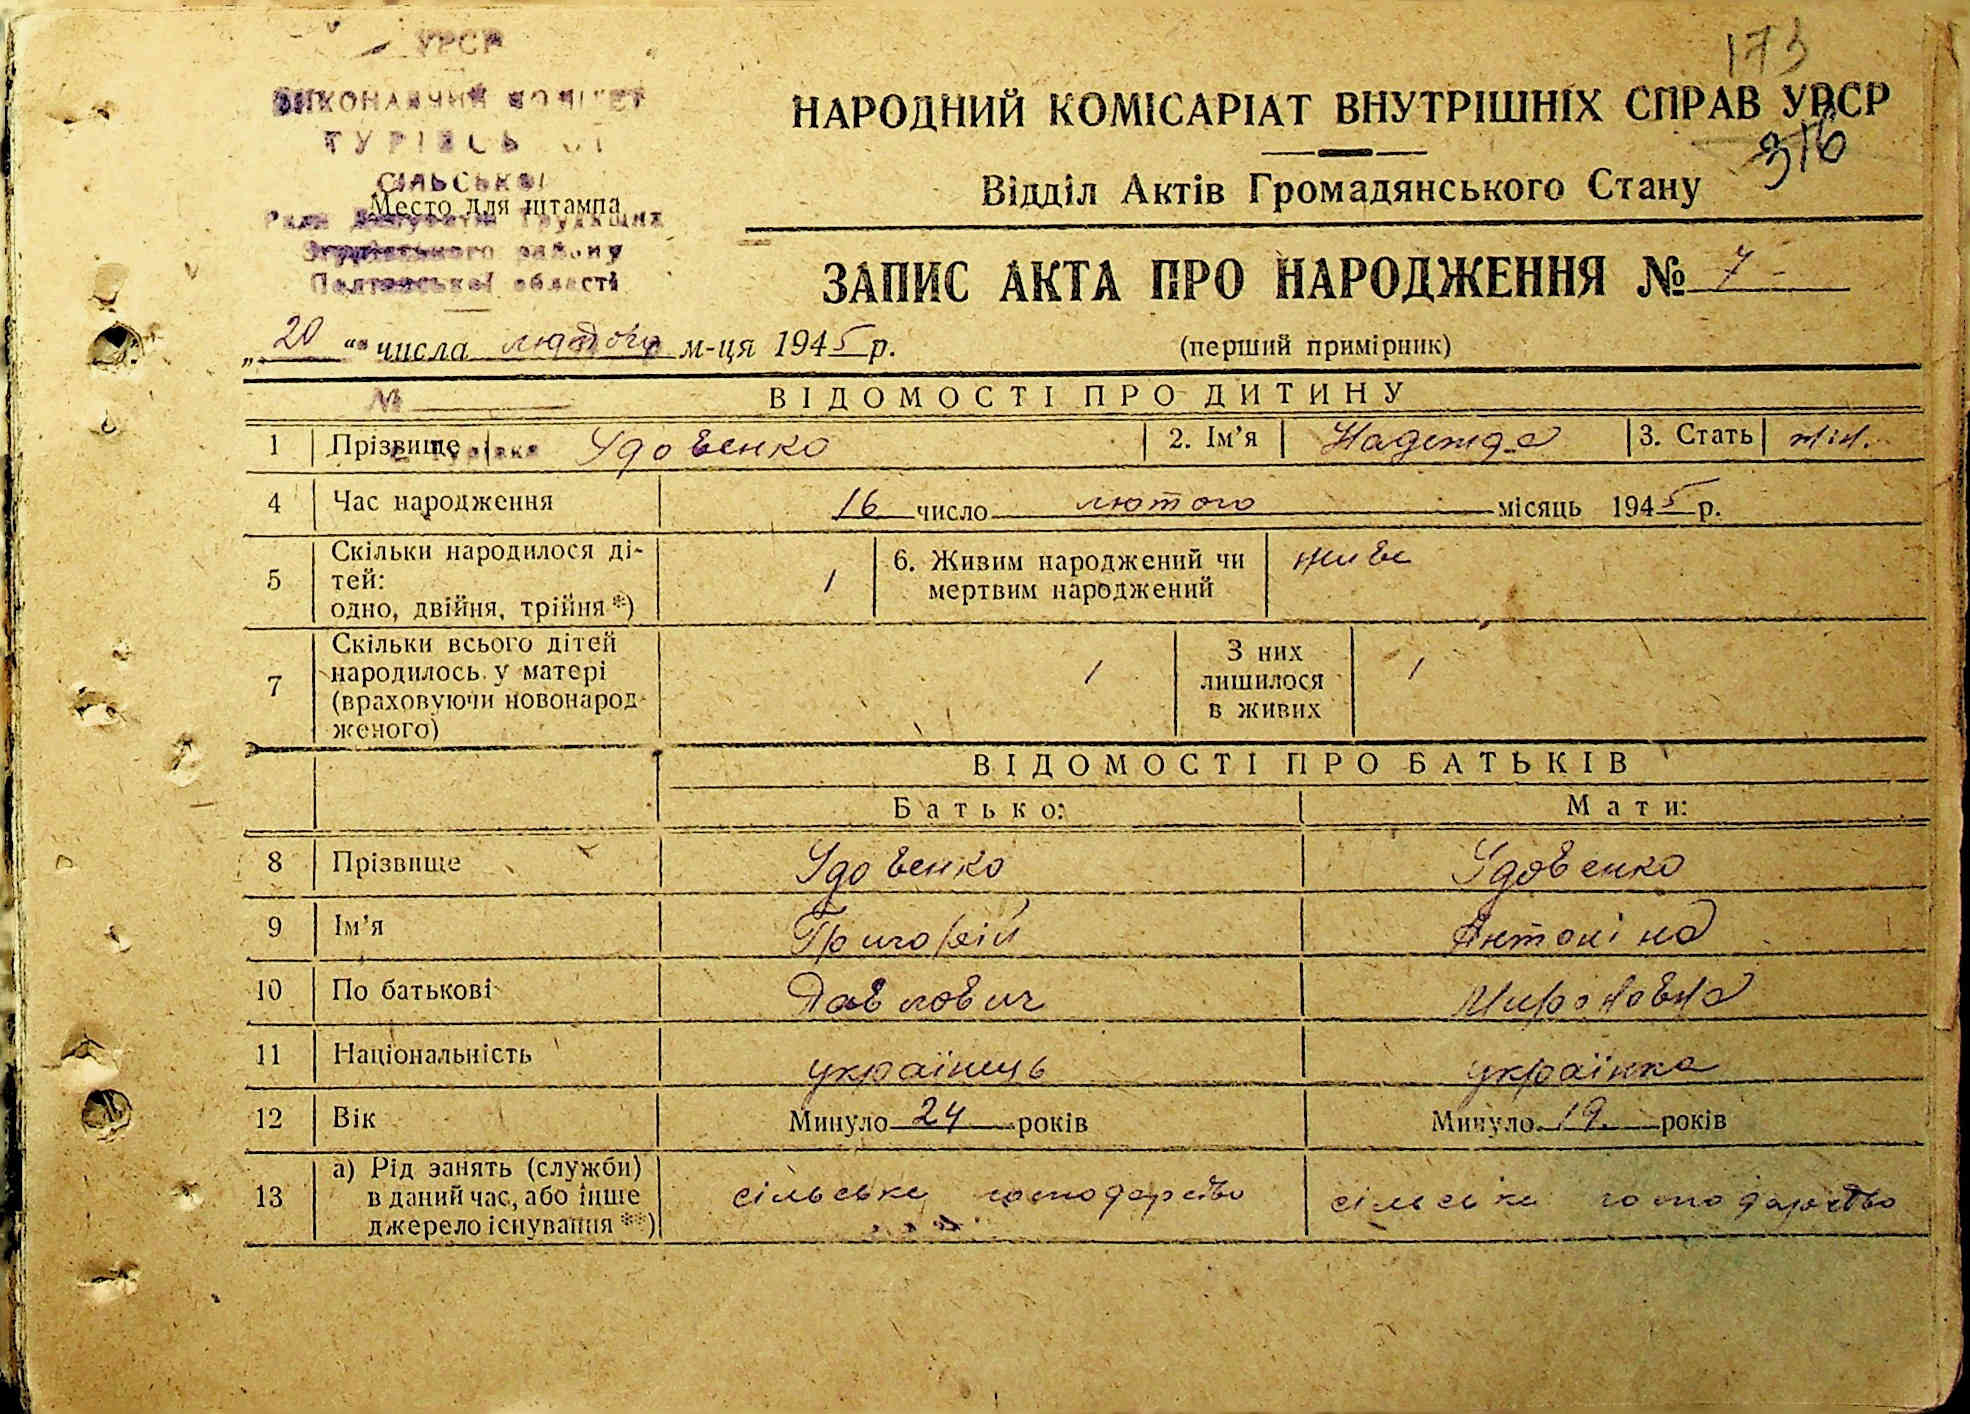 173
УРСР
ВИКОНАВЧИЙ КОМІТЕТ
ТУРІВСЬКОЇ
СІЛЬСЬКОЇ
Место для штампа
Ради Депутатів Трудящих
Згурівського району
Полтавської області
НАРОДНИЙ КОМІСАРІАТ ВНУТРІШНІХ СПРАВ УРСР
316
Відділ Актів Громадянського Стану
ЗАПИС АКТА ПРО НАРОДЖЕННЯ № 7
„20“ числа лютого м-ця 1945 р.
(перший примірник)
№
ВІДОМОСТІ ПРО ДИТИНУ
1 Прізвище Удовенко 2. Ім’я Надежда 3. Стать жін.
с. Турівка
4 Час народження 16 число лютого місяць 1945 р.
5 Скільки народилося ді-
тей:
одно, двійня, трійня *)
1
6. Живим народжений чи
мертвим народжений
живе
7 Скільки всього дітей
народилось у матері
(враховуючи новонарод-
женого)
1
З них
лишилося
в живих
1
ВІДОМОСТІ ПРО БАТЬКІВ
Батько: Мати:
8 Прізвище Удовенко Удовенко
9 Ім’я Григорій Антоніна
10 По батькові Павлович Мироновна
11 Національність українець українка
12 Вік Минуло 24 років Минуло 19 років
13 а) Рід занять (служби)
в даний час, або інше
джерело існування **)
сільське господарство сільське господарство